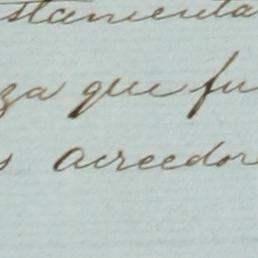 stamenta
za que fu
s acreedor